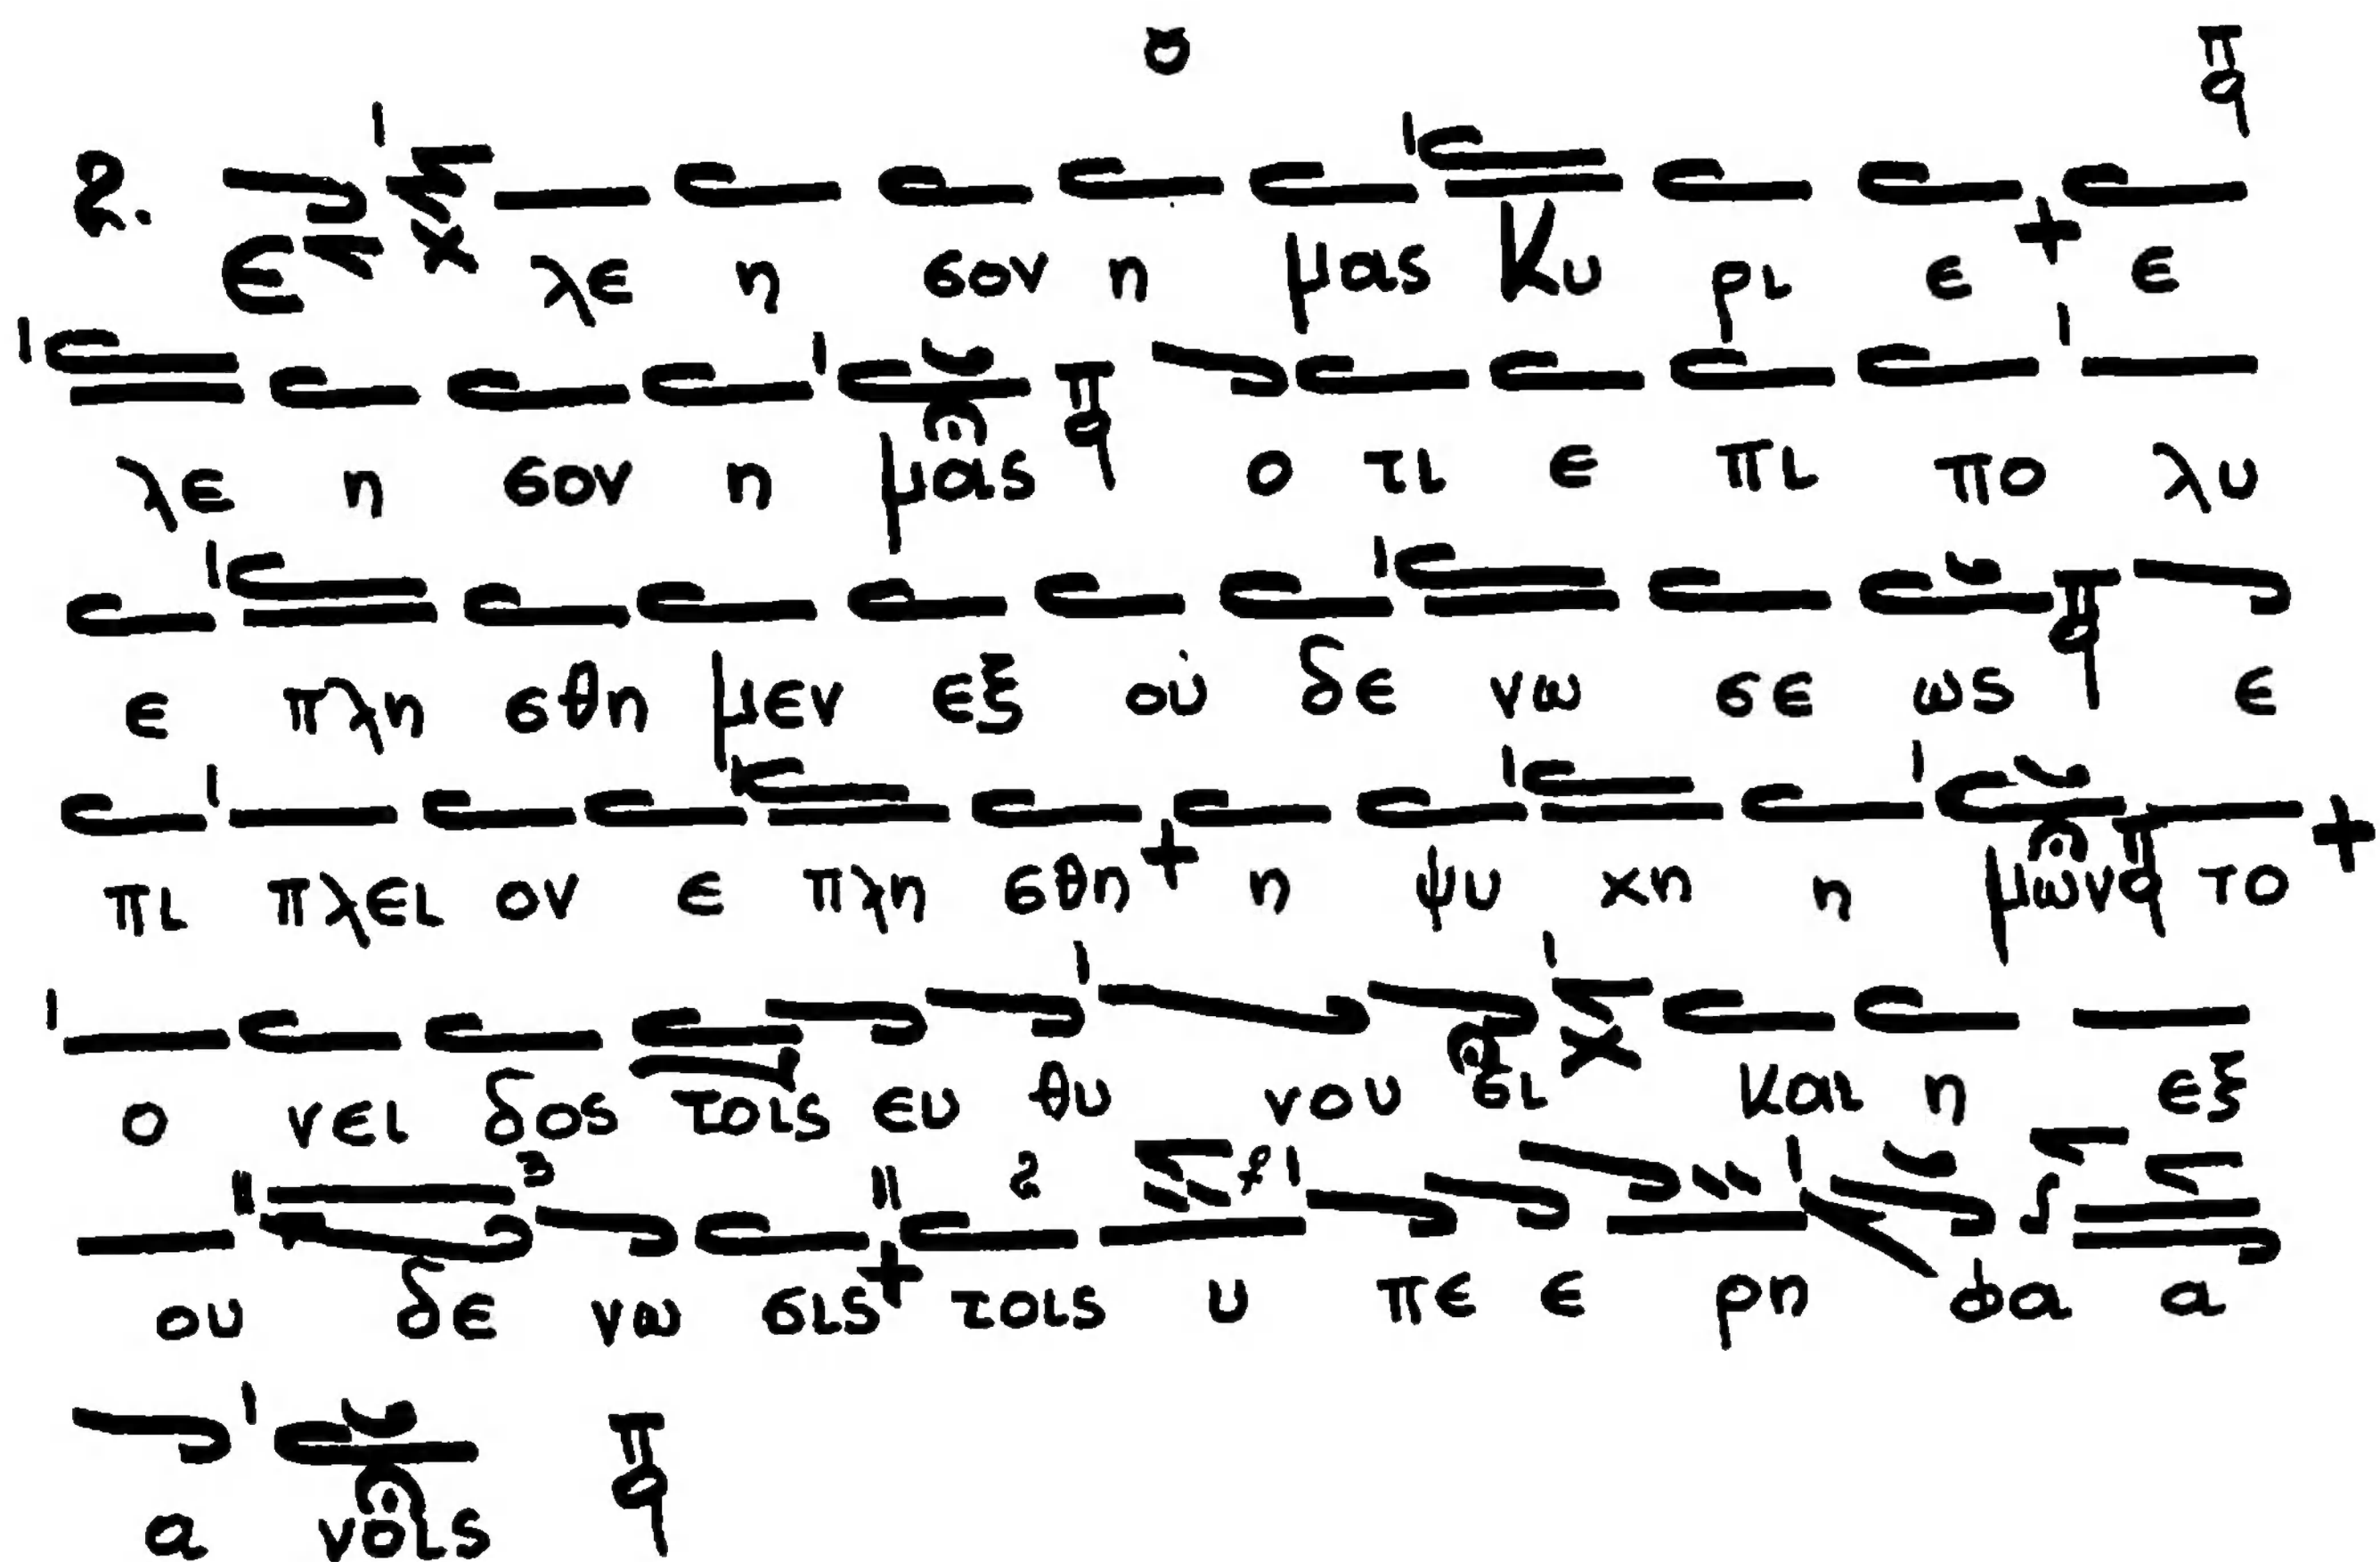 2. Ε λε η σον η μας Κυ ρι ε ε
λε η σον η μας ο τι ε πι πο λυ
ε πλη σθη μεν εξ οὐ δε νω σε ως ε
πι πλει ον ε πλη σθη η ψυ χη η μων το
ο νει δος τοις ευ θυ νου σι και η εξ
ου δε νω σις τοις υ πε ε ρη φα α
α νοις